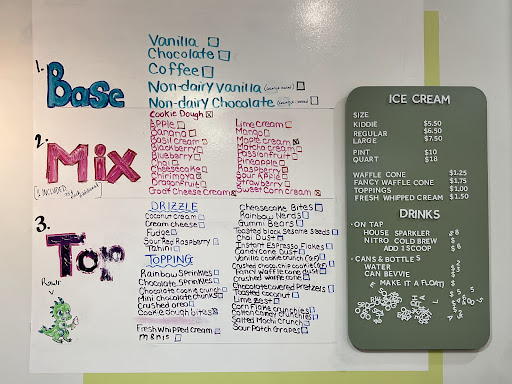 1.
Base
Vanilla
Chocolate
Coffee
Non-dairy Vanilla
Non-dairy Chocolate
2.
Mix
Cookie Dough
Apple
Banana
Basil cream
Blackberry
Blueberry
Chai
Cheesecake
Chirimoya
Dragonfruit
Goat Cheese Cream
Lime Cream
Mango
Maple cream
Matcha cream
Passionfruit
Pineapple
Raspberry
Sour Apple
Strawberry
Sweet Corn cream
3.
Top
Rawr
DRIZZLE
Coconut cream
Cream cheese
Fudge
Sour Red Raspberry
Tahini
TOPPING
Rainbow Sprinkles
Chocolate Sprinkles
Chocolate cookie crunch
Mini chocolate chunks
Crushed
Cookie dough bites
Fresh whipped cream
M&Ms
Cheesecake Bites
Rainbow Nerds
Gummi Bears
Toasted black sesame seeds
Chai Dust
Instant Espresso Flakes
Candy cane Dust
Vanilla cookie crunch (GF)
Crushed choco chip cookie (GF)
Fancy waffle cone dust
Crushed waffle cone
Chocolate covered Pretzels
Toasted coconut
Lime Zest
Corn Flake crunchies
Cotton candy crunchies
Salted Mochi Crunch
Sour Patch Grapes
ICE CREAM
SIZE
KIDDIE $5.50
REGULAR $6.50
LARGE $7.50
PINT $10
QUART $18
WAFFLE CONE $1.25
FANCY WAFFLE CONE $1.75
TOPPINGS $1.00
FRESH WHIPPED CREAM $1.50
DRINKS
·ON TAP
HOUSE SPARKLER $8
NITRO COLD BREW $6
ADD 1 SCOOP $6
·CANS & BOTTLES
WATER
CAN BEVVIE
MAKE IT A FLOAT!